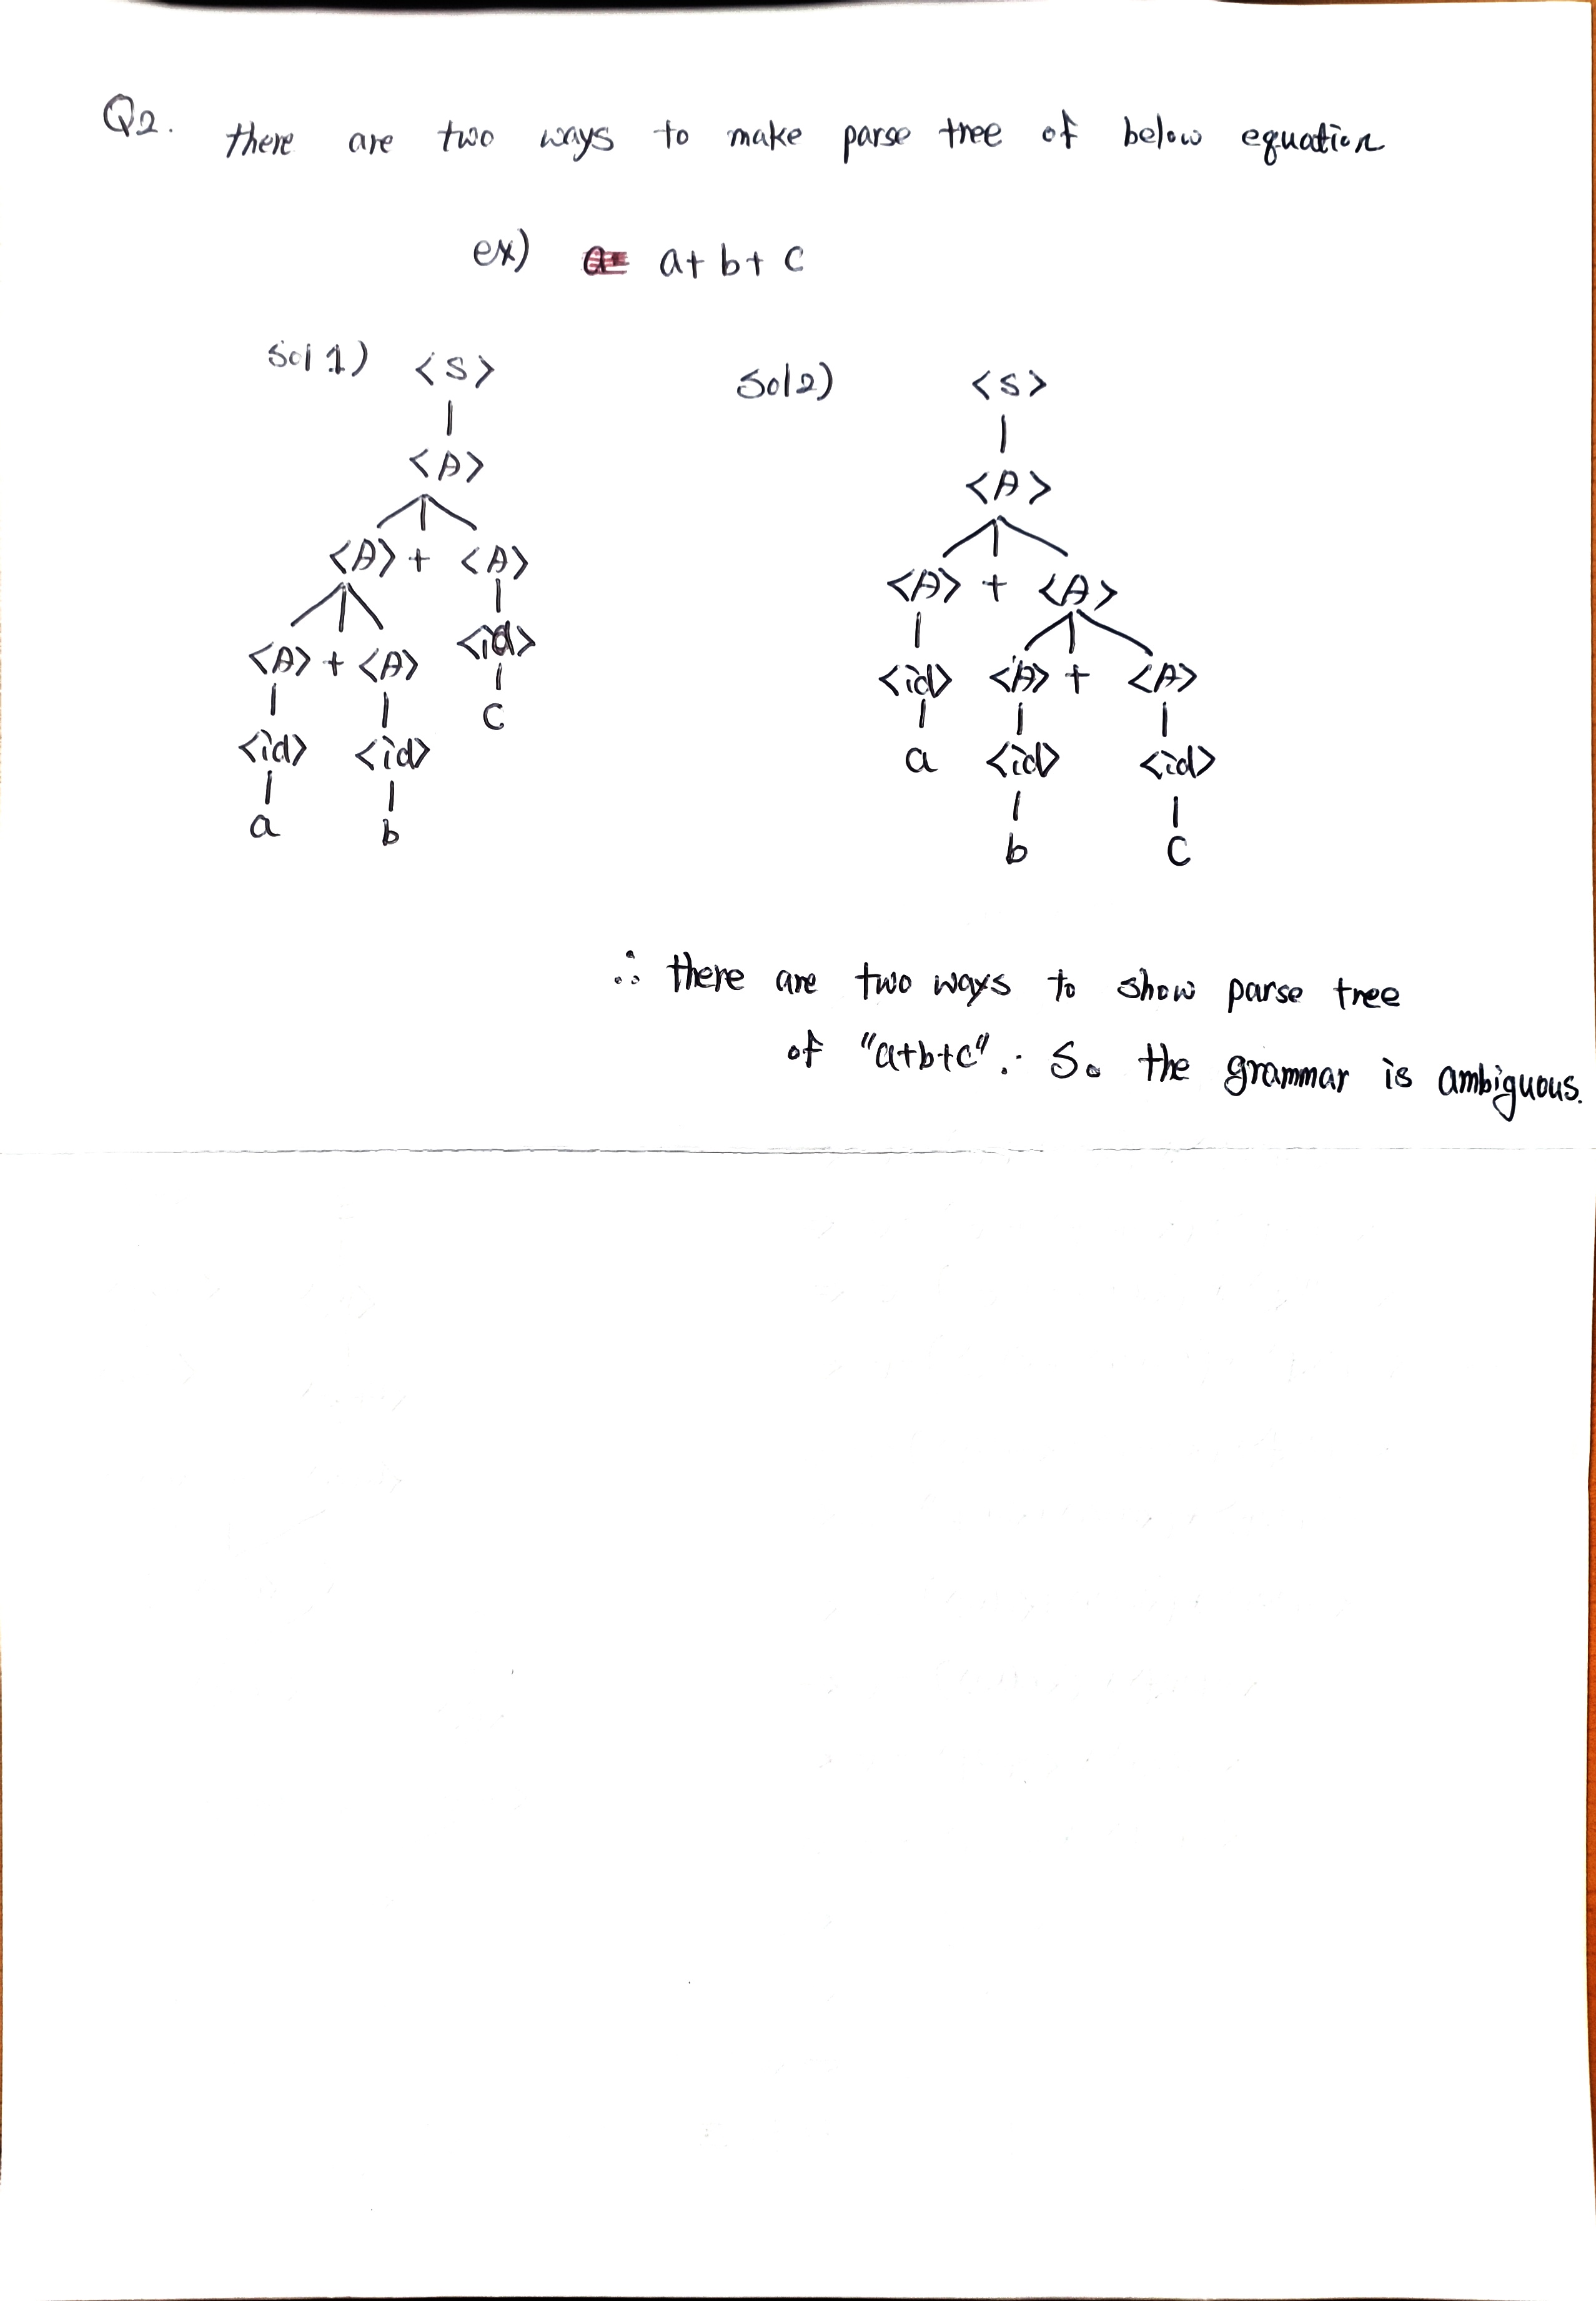 Q2. there are two ways to make parse tree of below equation
ex) a+b+c
Sol 1) <S>
<A>
<A> + <A>
<A> + <A> <id>
<id> <id> c
a b
Sol2) <S>
<A>
<A> + <A>
<id> <A> + <A>
a <id> <id>
b c
∴ there are two ways to show parse tree
of "a+b+c". So the grammar is ambiguous.